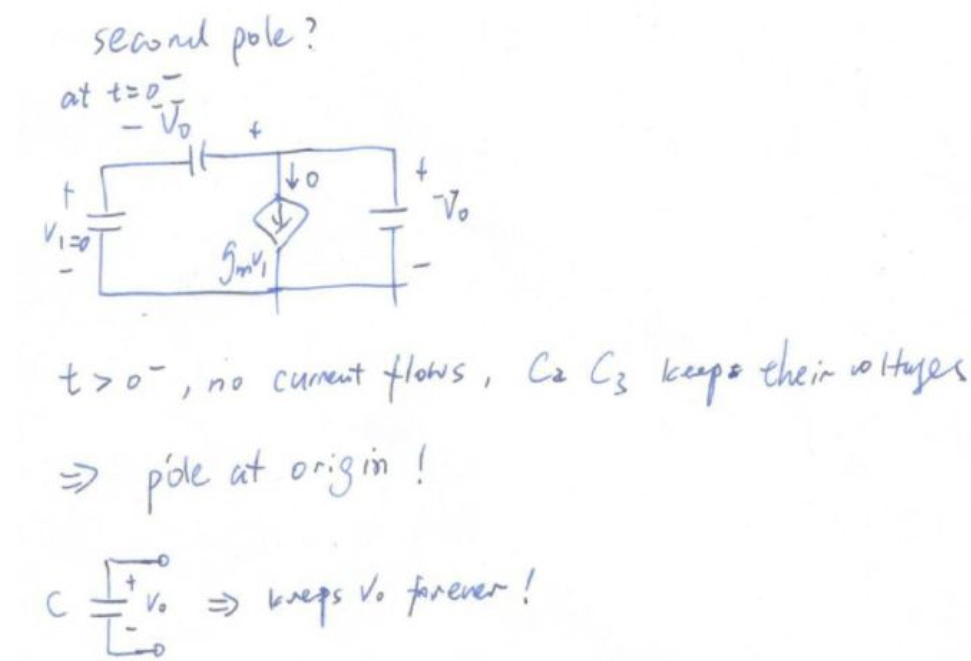 second pole?
at t=0⁻
− V₀ +
+ ↓0 +
V₁=0 gₘv₁ V₀
− −
t>0⁻, no current flows, C₂ C₃ keeps their voltages
⇒ pole at origin!
C + V₀ − ⇒ keeps V₀ forever!